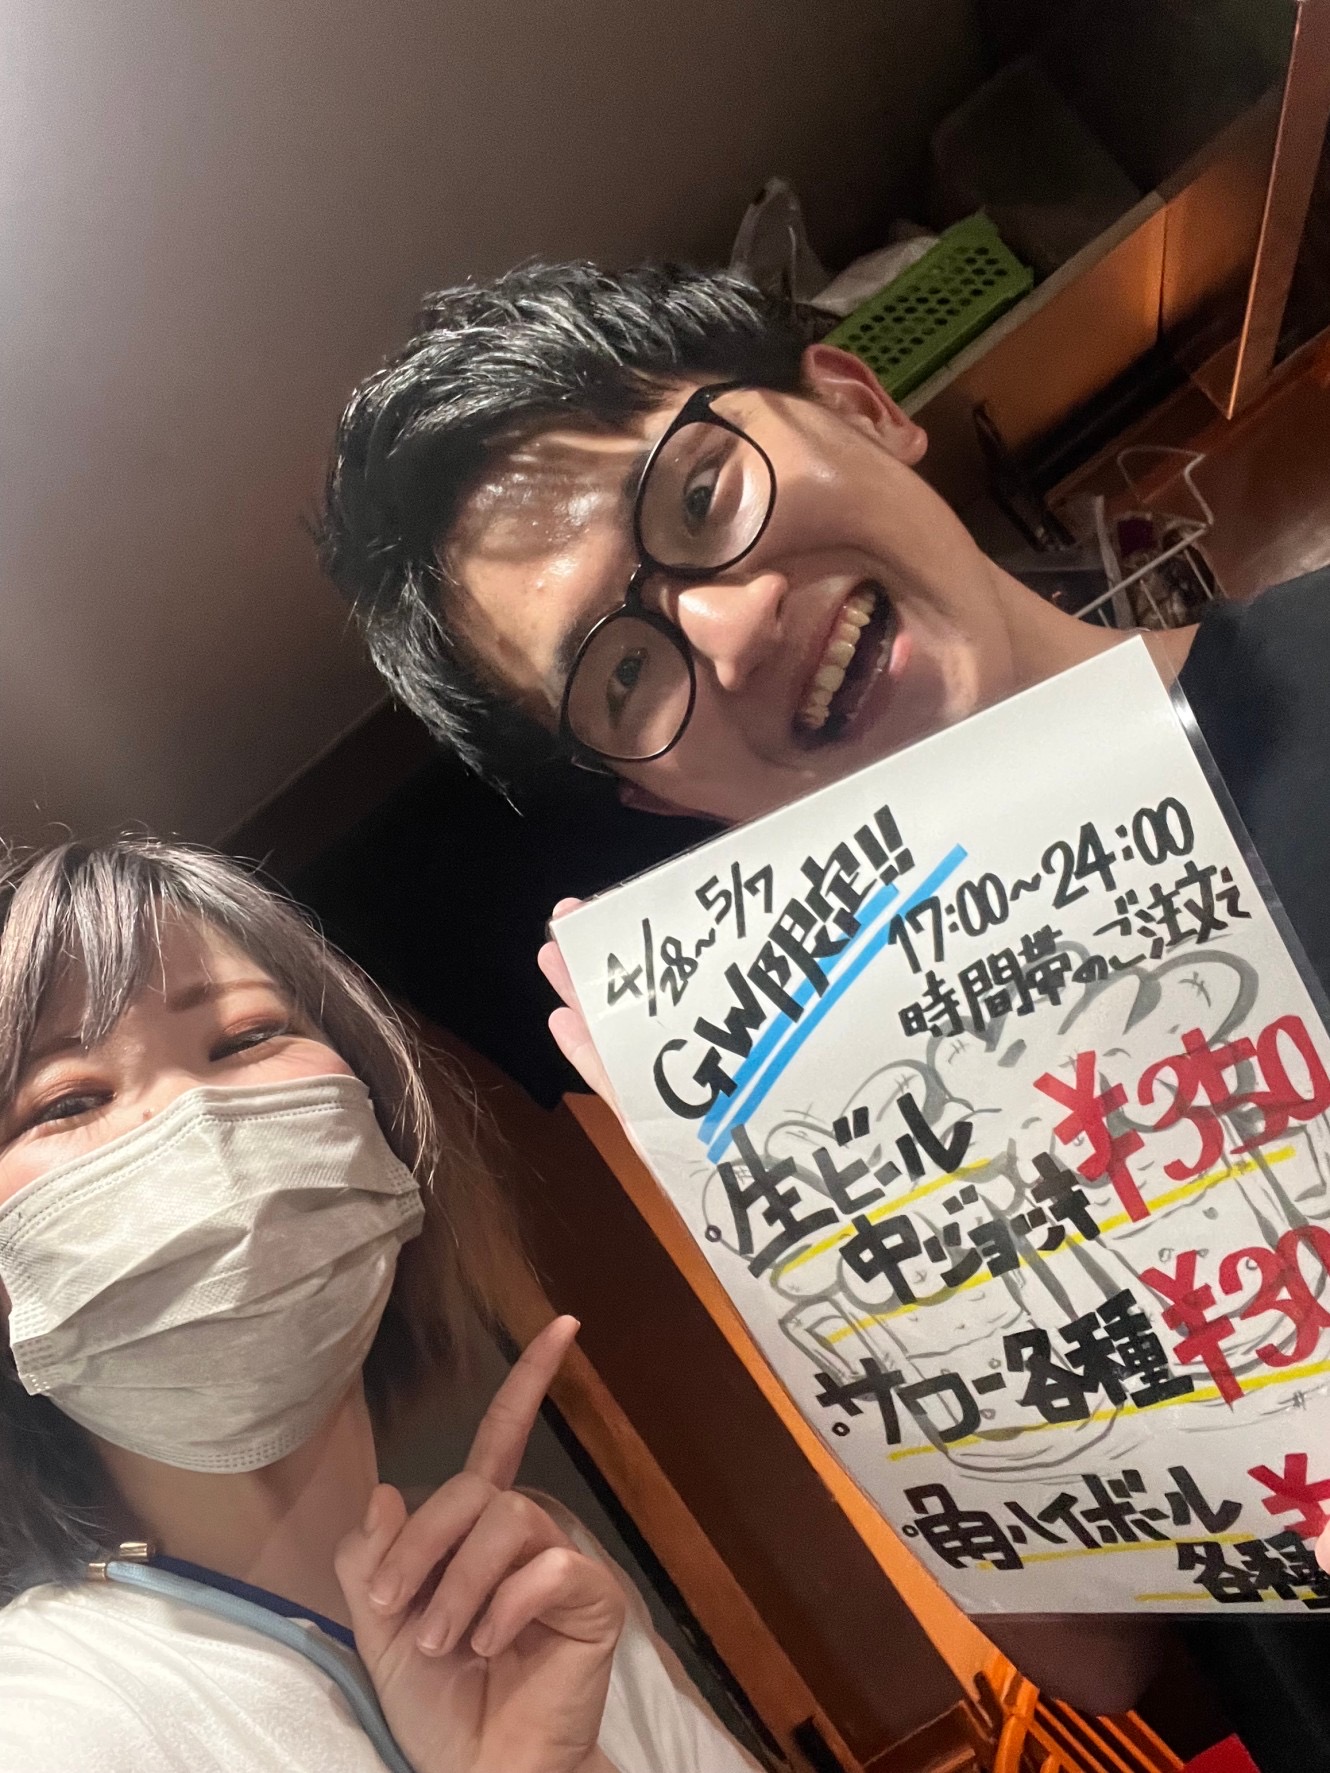 4/28~5/7
GW限定!!
17:00~24:00
時間帯のご注文で
。生ビール
中ジョッキ ¥350
。サワー各種 ¥30
。角ハイボール ¥
各種